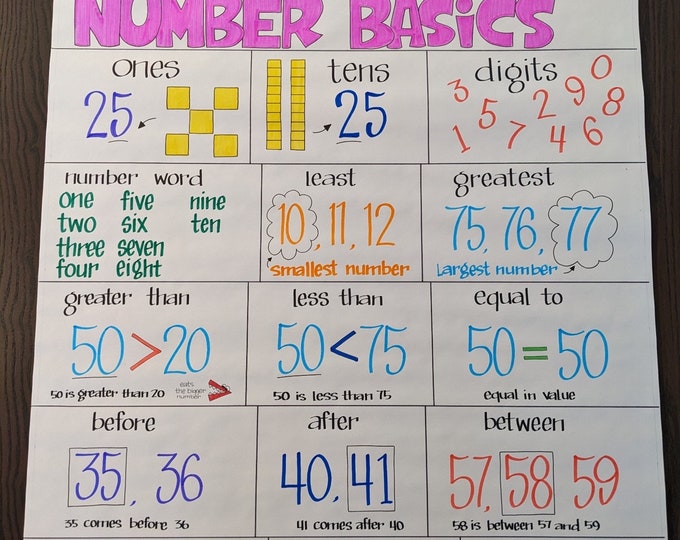 NUMBER BASICS
ones
25
tens
25
digits
3 5 2 9 0 8
1 7 4 6
number word
one five nine
two six ten
three seven
four eight
least
10, 11, 12
smallest number
greatest
75, 76, 77
Largest number
greater than
50 > 20
50 is greater than 20
eats
the bigger
number
less than
50 < 75
50 is less than 75
equal to
50 = 50
equal in value
before
35, 36
35 comes before 36
after
40, 41
41 comes after 40
between
57, 58 59
58 is between 57 and 59